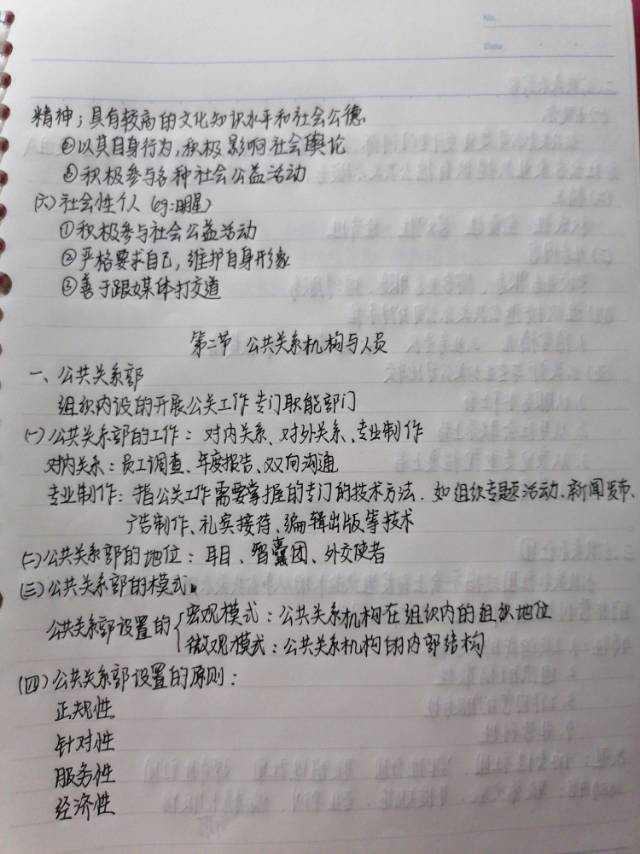 No.
Date
精神；具有较高的文化知识水平和社会公德.
②以其自身行为,积极影响社会舆论
③积极参与各种社会公益活动
(六)社会性个人(eg:明星)
①积极参与社会公益活动
②严格要求自己,维护自身形象
③善于跟媒体打交道
第二节 公共关系机构与人员
一、公共关系部
组织内设的开展公关工作专门职能部门
(一)公共关系部的工作：对内关系、对外关系、专业制作
对内关系：员工调查、年度报告、双向沟通
专业制作：指公关工作需要掌握的专门的技术方法.如组织专题活动、新闻发布、
广告制作、礼宾接待、编辑出版等技术
(二)公共关系部的地位：耳目、智囊团、外交使者
(三)公共关系部的模式
公共关系部设置的{宏观模式：公共关系机构在组织内的组织地位
微观模式：公共关系机构的内部结构
(四)公共关系部设置的原则：
正规性
针对性
服务性
经济性